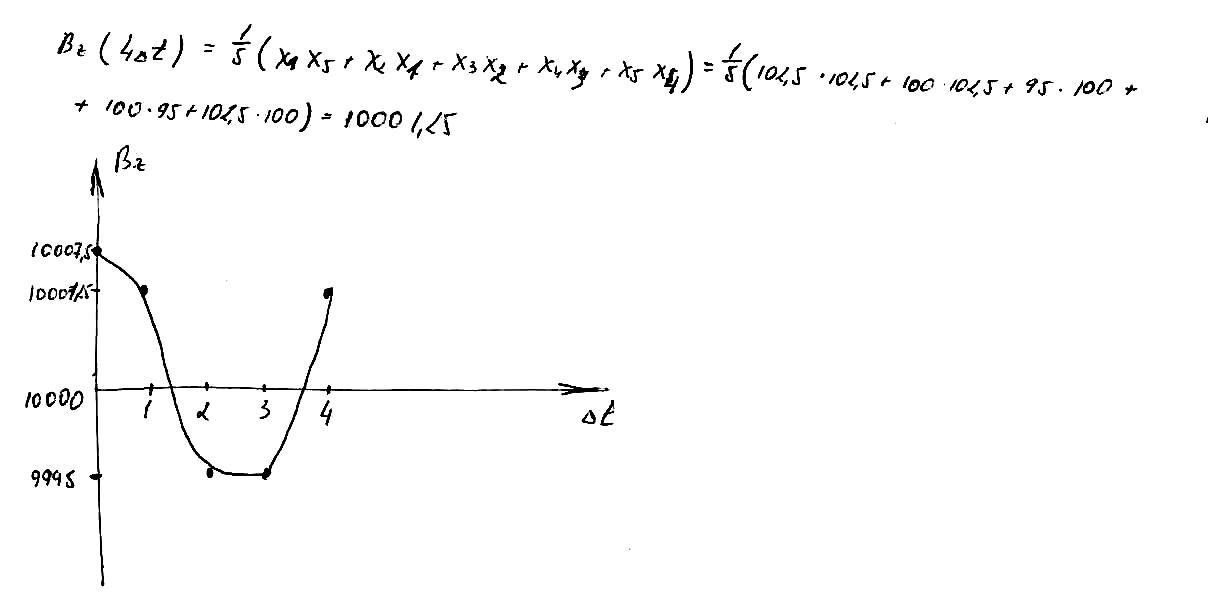 Bz (4Δt) = 1/5 (x1 x5 + x2 x1 + x3 x2 + x4 x3 + x5 x4) = 1/5 (102,5 · 102,5 + 100 · 102,5 + 95 · 100 +
+ 100 · 95 + 102,5 · 100) = 10001,25
Bz
10007,5
10001,25
10000
1 2 3 4
Δt
9995